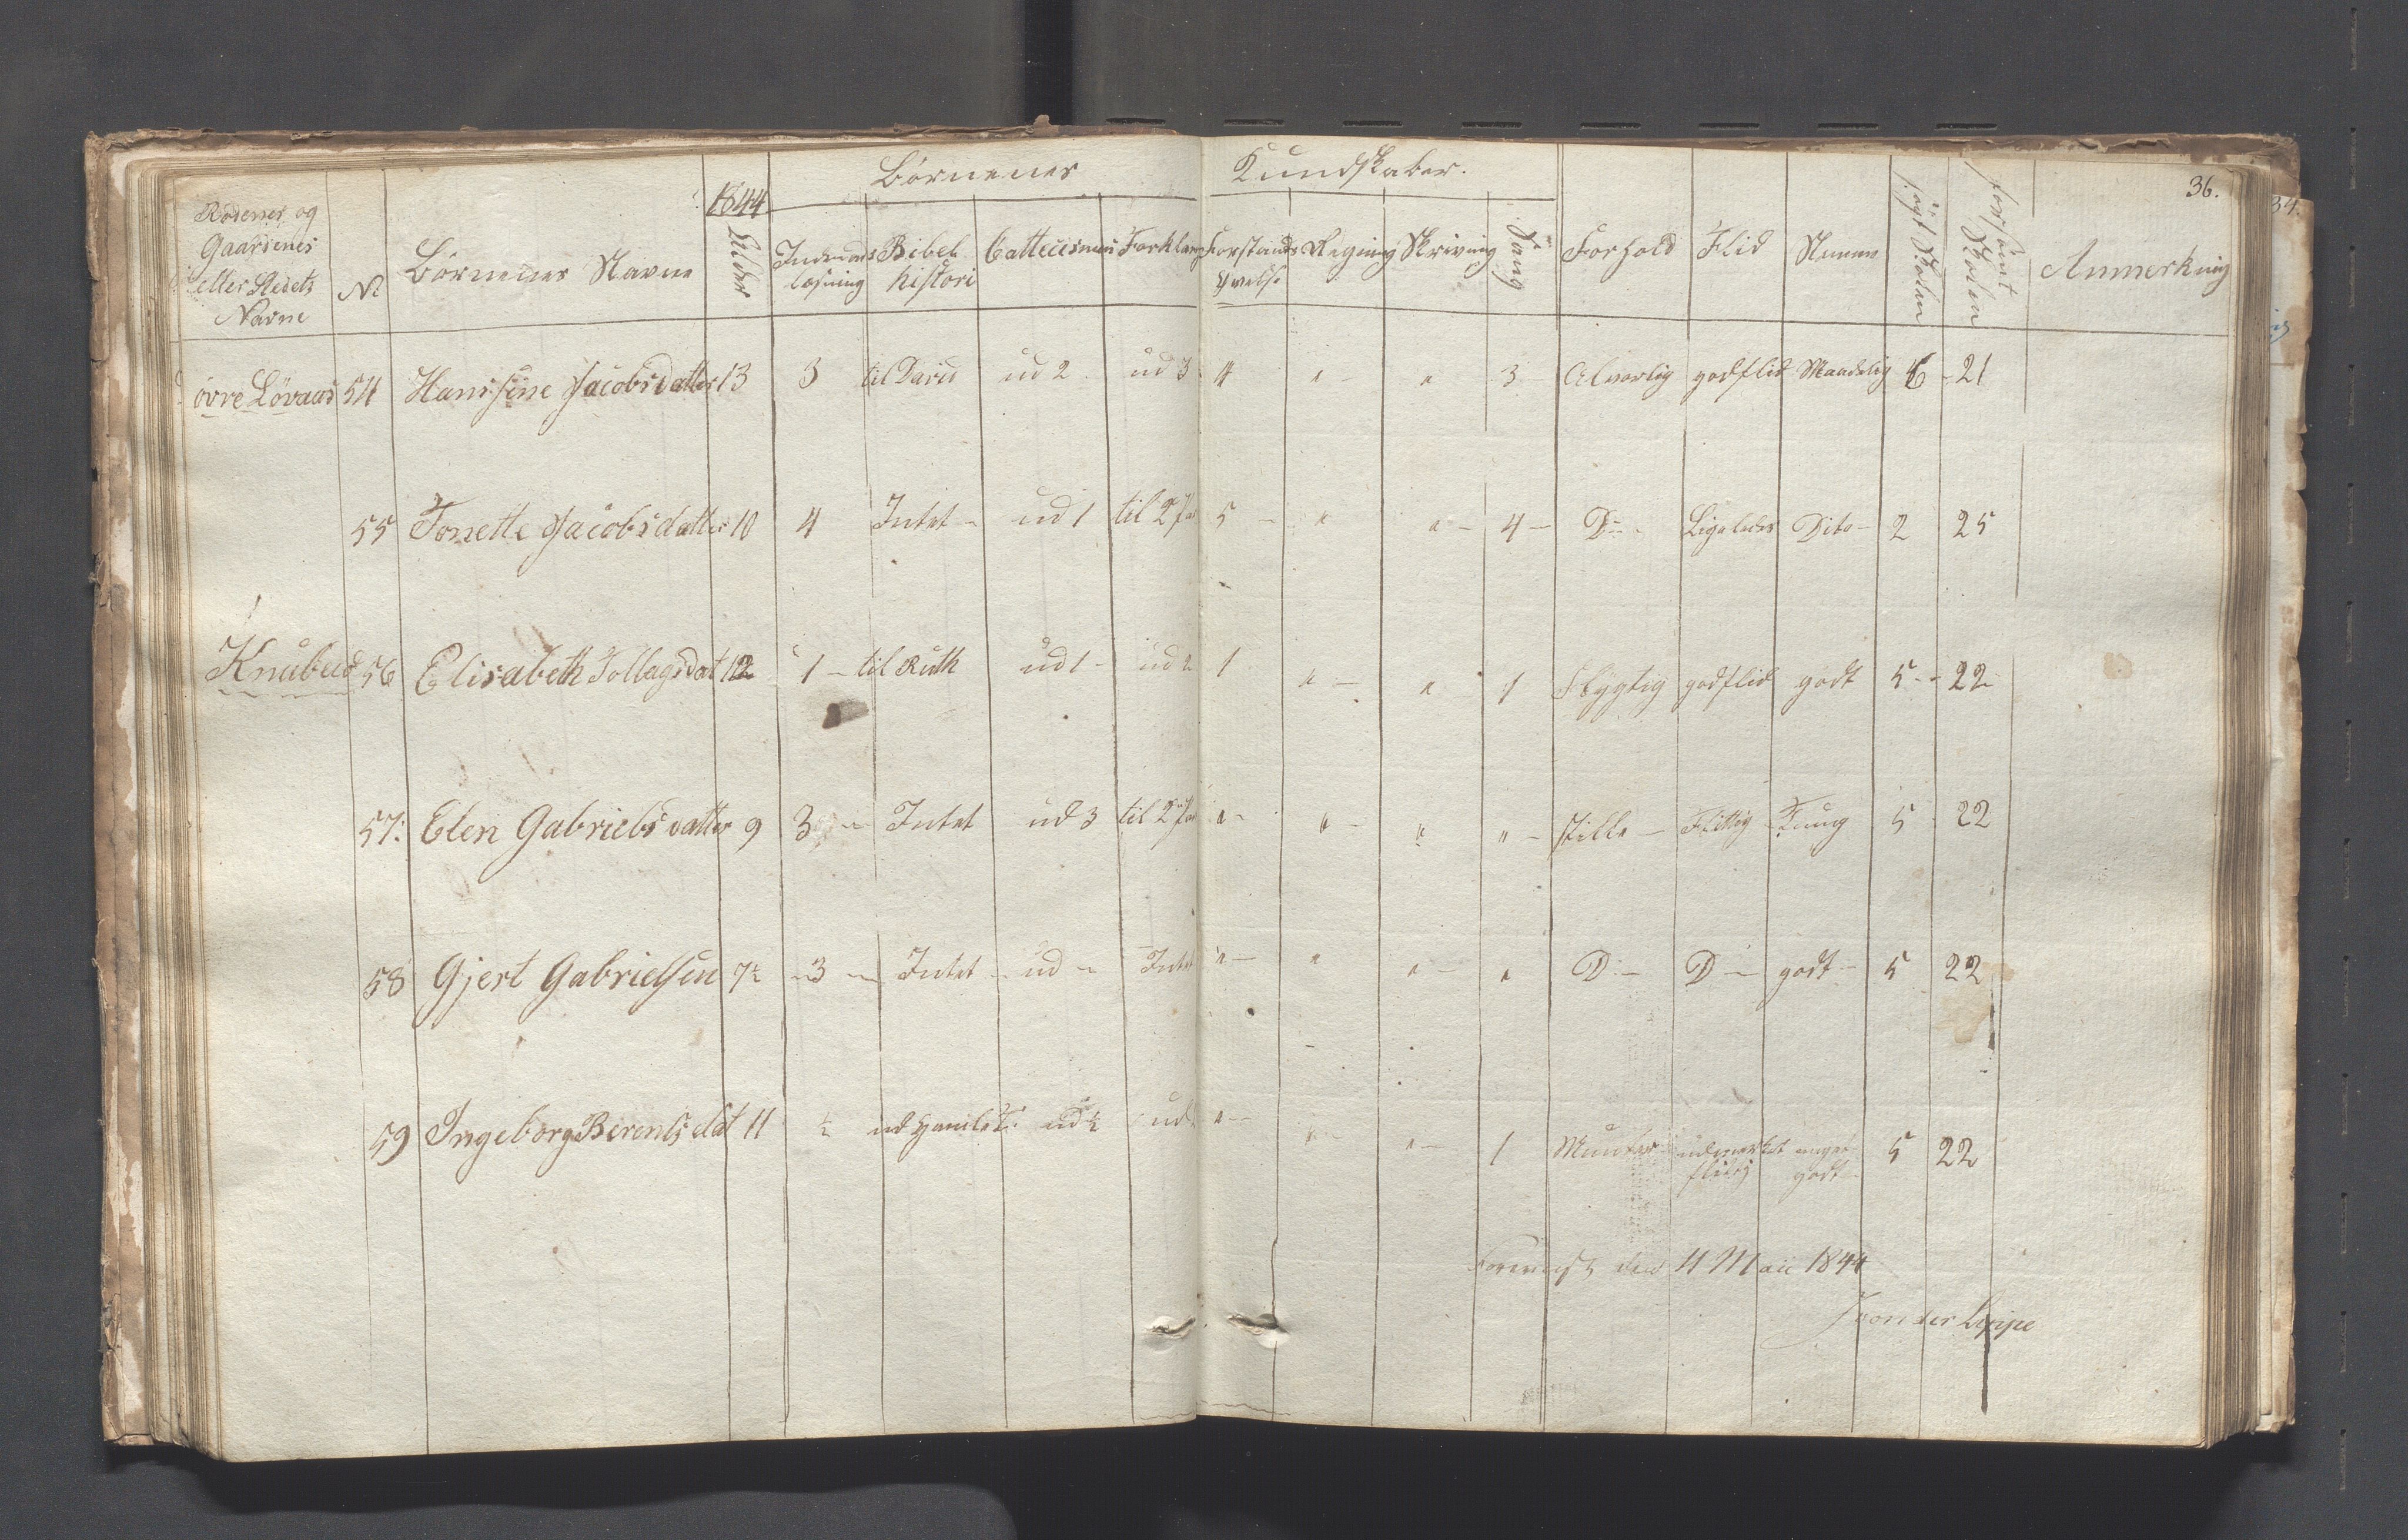 36.
Børnenes Kundskaber.
Rodernes og Gaardenes eller Stedets Navne
No
Børnenes Navne
1844 Alder
Indenads læsning
Bibel histori
Cattecismus
Forklaring
Forstands øvelse
Regning
Skrivning
Sang
Forhold
Flid
Nemme
søgt Skolen
forsømt Skolen
Anmerkning
øvre Løvaas 54 Hanssine Jacobsdatter 13 3 til David ud 2 ud 3 4 " " 3 Alvorlig godflid Maadelig 6 - 21
55 Tonette Jacobsdatter 10 4 Intet - ud 1 til 2 Par 5 - " " - 4 - Do - Ligeledes Dito - 2 25
Knubed 56 Elisabeth Tollagsdat 12 1 - til Ruth ud 1 - ud 2 1 " - " 1 Flygtig godflid godt 5 - 22
57. Elen Gabrielsdatter 9 3 - Intet ud 3 til 2 Par " - " - " " - stille - Flittig Tung 5 22
58 Gjert Gabrielsen 7½ - 3 - Intet - ud - Intet " - " " - " D - D - godt - 5 22
59 Ingeborg Berentsdat 11 ½ ud ½ ud " - " - " - 1 Munter udmerket flitig meget godt 5 22
den 11 Maii 1844